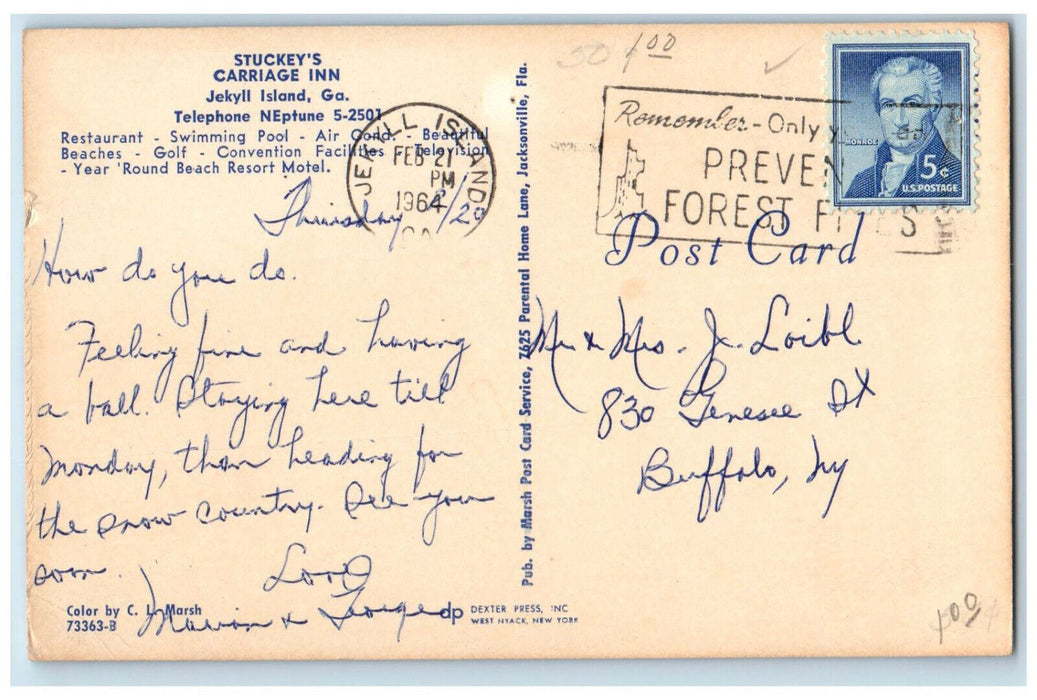 STUCKEY'S
CARRIAGE INN
Jekyll Island, Ga.
Telephone NEptune 5-2501
Restaurant - Swimming Pool - Air Cond. - Beautiful
Beaches - Golf - Convention Facilities - Television
- Year 'Round Beach Resort Motel.
Thursday 2/20
How do you do.
Feeling fine and having
a ball. Staying here till
Monday, then heading for
the snow country. See you
soon.
Love
Marion & George
Color by C. L. Marsh
73363-B
dp DEXTER PRESS, INC
WEST NYACK, NEW YORK
Pub. by Marsh Post Card Service, 7625 Parental Home Lane, Jacksonville, Fla.
JEKYLL ISLAND
FEB 21
PM
1964
GA
50 1.00
Remember - Only y
PREVEN
FOREST FI ES
MONROE
5¢
U.S. POSTAGE
Post Card
Mr & Mrs. J. Loibl
830 Genesee St
Buffalo, Ny